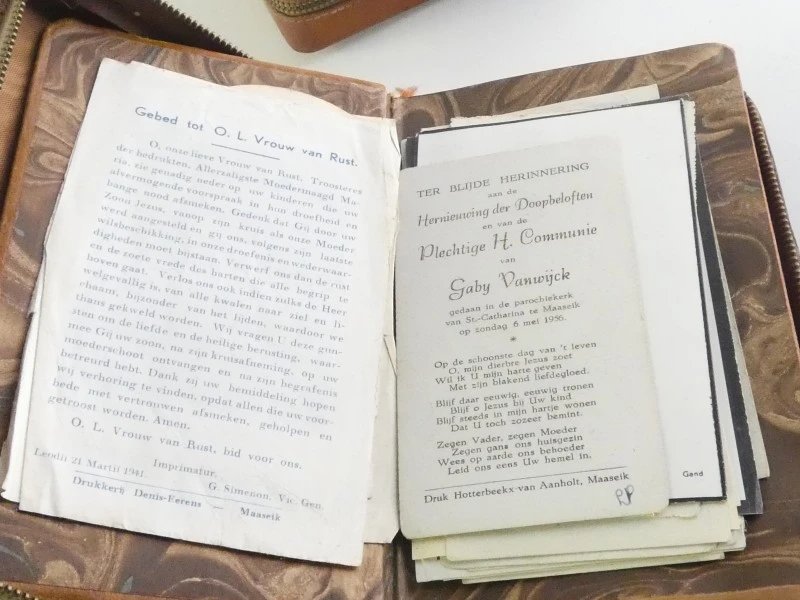 Gebed tot O. L. Vrouw van Rust.
O, onze lieve Vrouw van Rust, Troosteres
der bedrukten, Allerzaligste Moedermaagd Ma-
ria, zie genadig neder op uw kinderen die uw
alvermogende voorspraak in hun droefheid en
bange nood afsmeken. Gedenk dat Gij door uw
Zoon Jezus, vanop zijn kruis als onze Moeder
werd aangesteld en gij ons, volgens zijn laatste
wilsbeschikking, in onze droefenis en wederwaar-
digheden moet bijstaan. Verwerf ons dan de rust
en de zoete vrede des harten die alle begrip te
boven gaat. Verlos ons ook indien zulks de Heer
welgevallig is, van alle kwalen naar ziel en li-
chaam, bijzonder van het lijden, waardoor we
thans gekweld worden. Wij vragen U deze gun-
sten om de liefde en de heilige berusting, waar-
mee Gij uw zoon, na zijn kruisafneming, op uw
moederschoot ontvangen en na zijn begrafenis
betreurd hebt. Dank zij uw bemiddeling hopen
wij verhoring te vinden, opdat allen die uw voor-
bede met vertrouwen afsmeken, geholpen en
getroost worden. Amen.
O. L. Vrouw van Rust, bid voor ons.
Imprimatur.
Leodii 21 Martii 1941.
G. Simenon, Vic. Gen.
Drukkerij Denis-Ferens — Maaseik
TER BLIJDE HERINNERING
aan de
Hernieuwing der Doopbeloften
en van de
Plechtige H. Communie
van
Gaby Vanwijck
gedaan in de parochiekerk
van St.-Catharina te Maaseik
op zondag 6 mei 1956.
*
Op de schoonste dag van 't leven
O, mijn dierbre Jezus zoet
Wil ik U mijn harte geven
Met zijn blakend liefdegloed.
Blijf daar eeuwig, eeuwig tronen
Blijf o Jezus bij Uw kind
Blijf steeds in mijn hartje wonen
Dat U toch zozeer bemint.
Zegen Vader, zegen Moeder
Zegen gans ons huisgezin
Wees op aarde ons behoeder
Leid ons eens Uw hemel in.
Druk Hotterbeekx-van Aanholt, Maaseik
RP
Gend